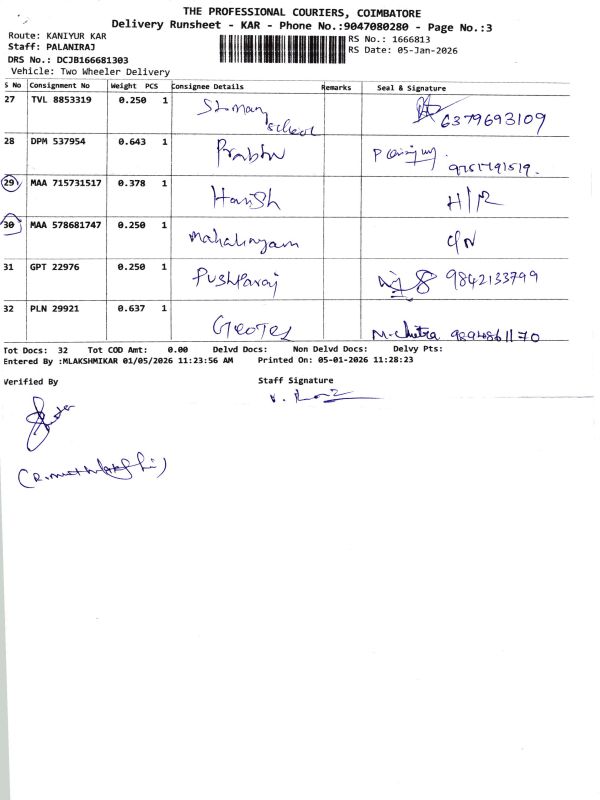 THE PROFESSIONAL COURIERS, COIMBATORE
Delivery Runsheet - KAR - Phone No.:9047080280 - Page No.:3
Route: KANIYUR KAR
Staff: PALANIRAJ
DRS No.: DCJB166681303
Vehicle: Two Wheeler Delivery
RS No.: 1666813
RS Date: 05-Jan-2026
S No Consignment No Weight PCS Consignee Details Remarks Seal & Signature
27 TVL 8853319 0.250 1 St. mary school 6379693109
28 DPM 537954 0.643 1 Prabhu
29 MAA 715731517 0.378 1 Harish H/R
30 MAA 578681747 0.250 1 C/N
31 GPT 22976 0.250 1 Pushparaj 9842133799
32 PLN 29921 0.637 1 M. Chitra 9894861170
Tot Docs: 32 Tot COD Amt: 0.00 Delvd Docs: Non Delvd Docs: Delvy Pts:
Entered By :MLAKSHMIKAR 01/05/2026 11:23:56 AM Printed On: 05-01-2026 11:28:23
Verified By
Staff Signature